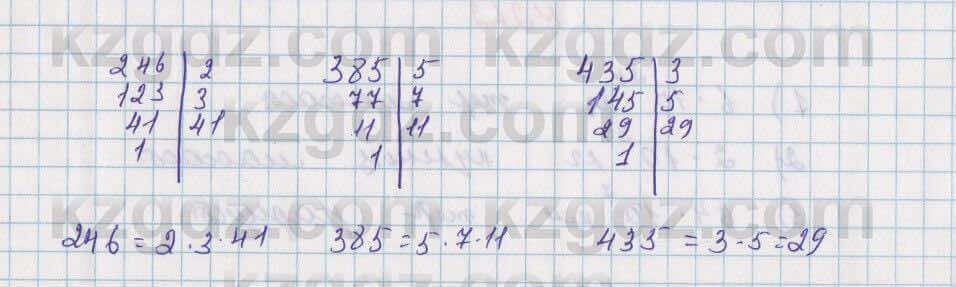 kzgdz.com kzgdz.com
246 | 2 385 | 5 435 | 3
123 | 3 77 | 7 145 | 5
41 | 41 11 | 11 29 | 29
1 | 1 | 1 |
kzgdz.com kzgdz.com
kzgdz.com kzgdz.com
246 = 2 · 3 · 41 385 = 5 · 7 · 11 435 = 3 · 5 = 29